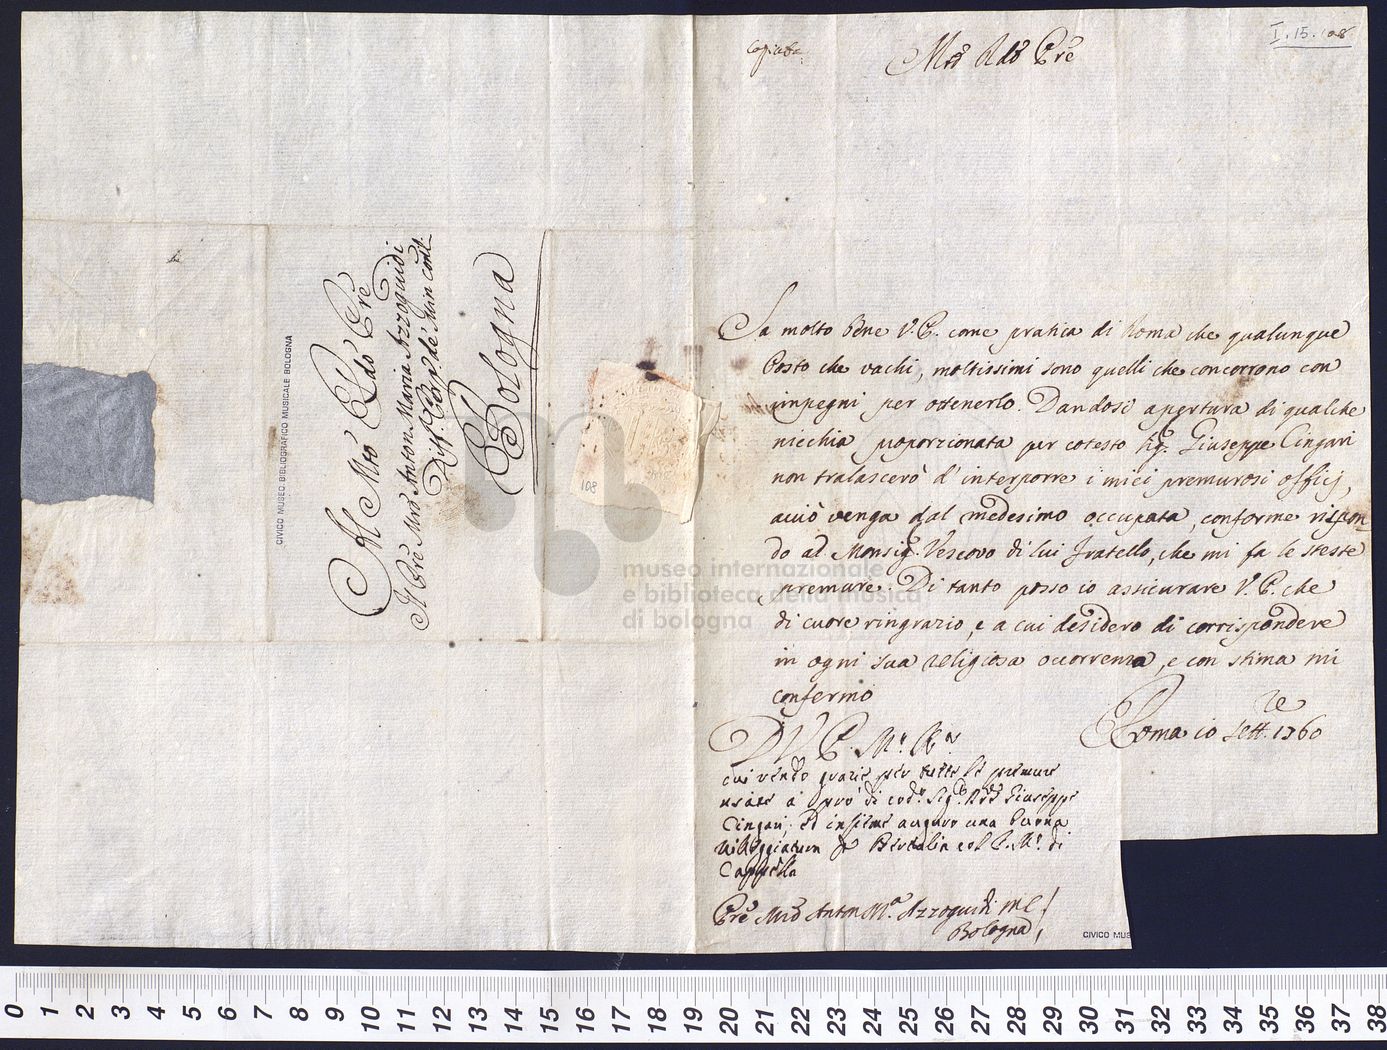 I. 15. 108
Copiata
Mto Rdo Pre
Sa molto bene V.P. come pratica di Roma che qualunque
Posto che vachi, moltissimi sono quelli che concorrono con
impegni per ottenerlo. Dandosi apertura di qualche
nicchia proporzionata per cotesto Sig. Giuseppe Cingari
non tralascerò d'interporre i miei premurosi officj,
acciò venga dal medesimo occupata, conforme rispon-
do ad Monsig. Vescovo di lui fratello, che mi fa le steste
premure. Di tanto posso io assicurare V.P. che
di cuore ringrazio, e a cui desidero di corrispondere
in ogni sua religiosa occorrenza, e con stima mi
confermo
Roma 10 Sett.re 1760
D V. P. M. R.
cui rendo grazie per tutte le premure
usate a prò di cod. Sig. Giuseppe
Cingari, ed insieme auguro una buona
villeggiatura Bertalia col P. M. di
Cappella
Pre Mro Anton M.a Azzoguidi M C
Bologna
Al Mto Rdo Pre
Il Pre Mro Anton Maria Azzoguidi
de Min Conl
Bologna
108
CIVICO MUSEO BIBLIOGRAFICO MUSICALE BOLOGNA
CIVICO MUS
museo internazionale
e biblioteca della musica
di bologna
0 1 2 3 4 5 6 7 8 9 10 11 12 13 14 15 16 17 18 19 20 21 22 23 24 25 26 27 28 29 30 31 32 33 34 35 36 37 38